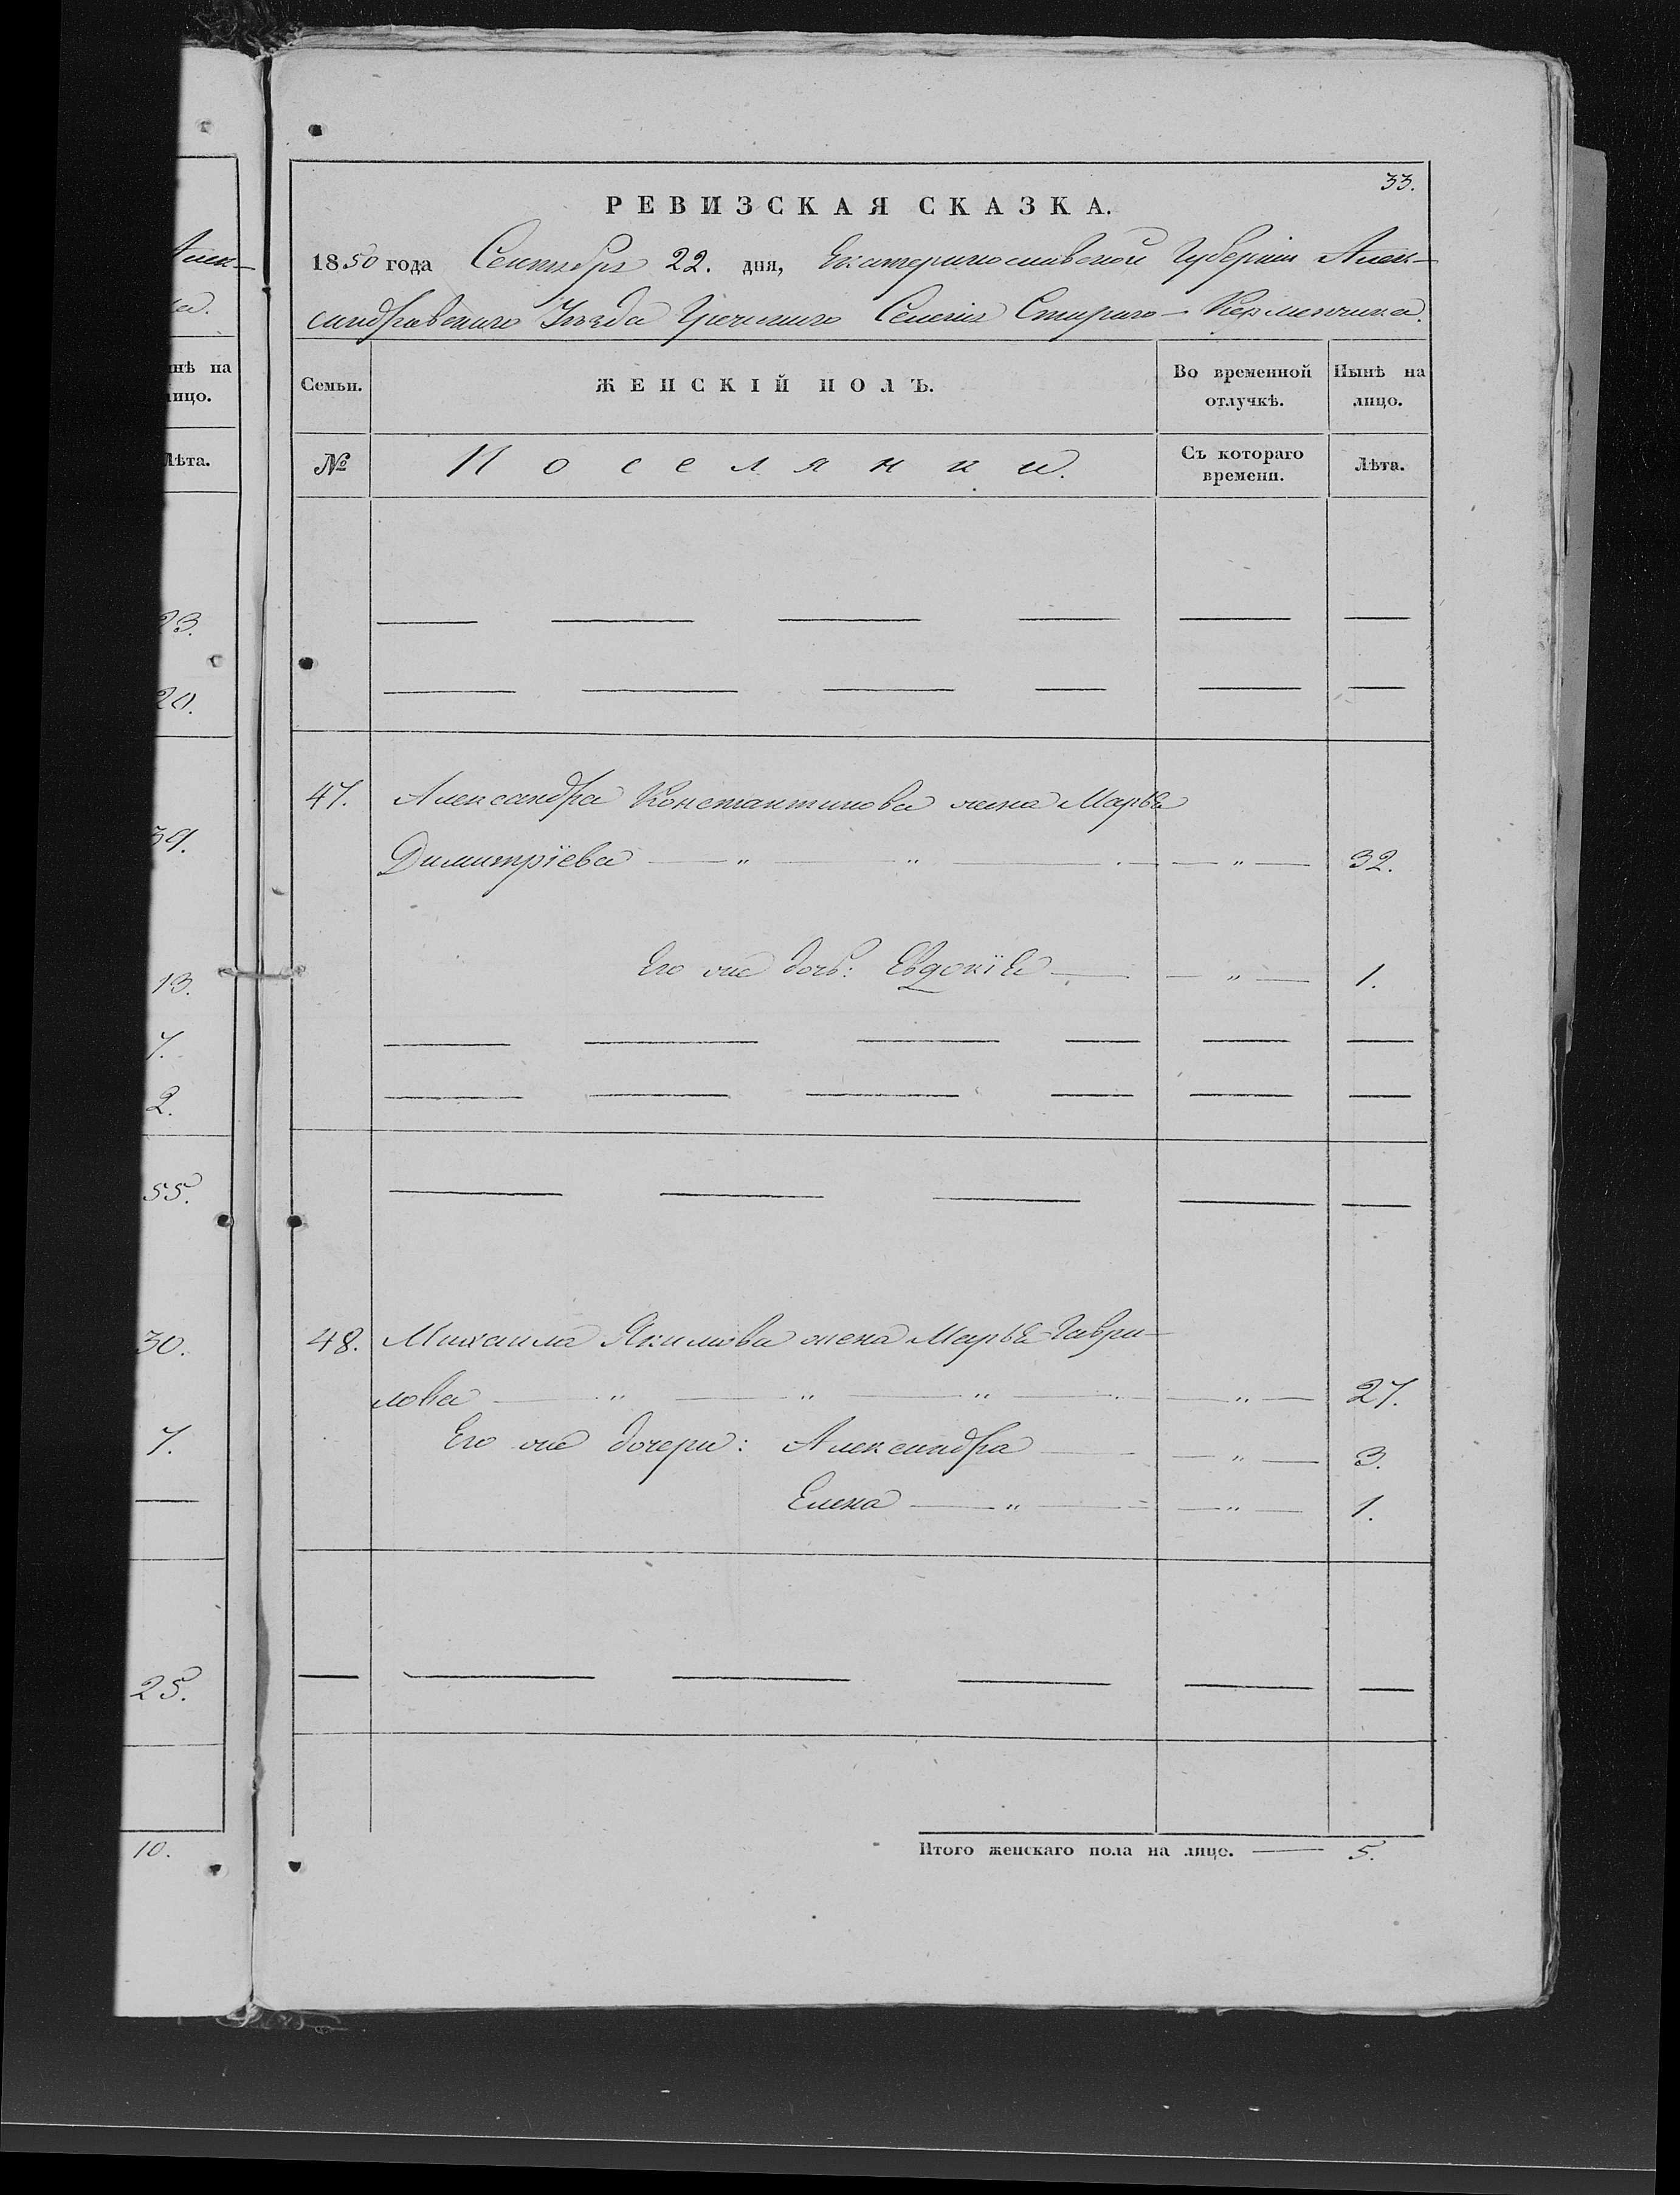 33.
РЕВИЗСКАЯ СКАЗКА.
1850 года Сентября 22. дня, Екатеринославской Губерніи Алек-
сандровскаго Уѣзда Греческаго Селенія Стараго-Керменчика.
Семьи. ЖЕНСКІЙ ПОЛЪ. Во временной отлучкѣ. Нынѣ на лицо.
№ Поселянки. Съ котораго времени. Лѣта.
47. Александра Константинова жена Марья
Димитріева — " — " — — " — 32.
Его же дочь: Евдокія — — " — 1.
48. Михаила Якимова жена Марья Гаври-
лова — " — " — " — — " — 27.
Его же дочери: Александра — — " — 3.
Елена — " — — " — 1.
Итого женскаго пола на лице. — 5.
Алек-
ка.
нѣ на
ицо.
Лѣта.
23.
20.
39.
13.
7.
2.
55.
30.
7.
25.
10.